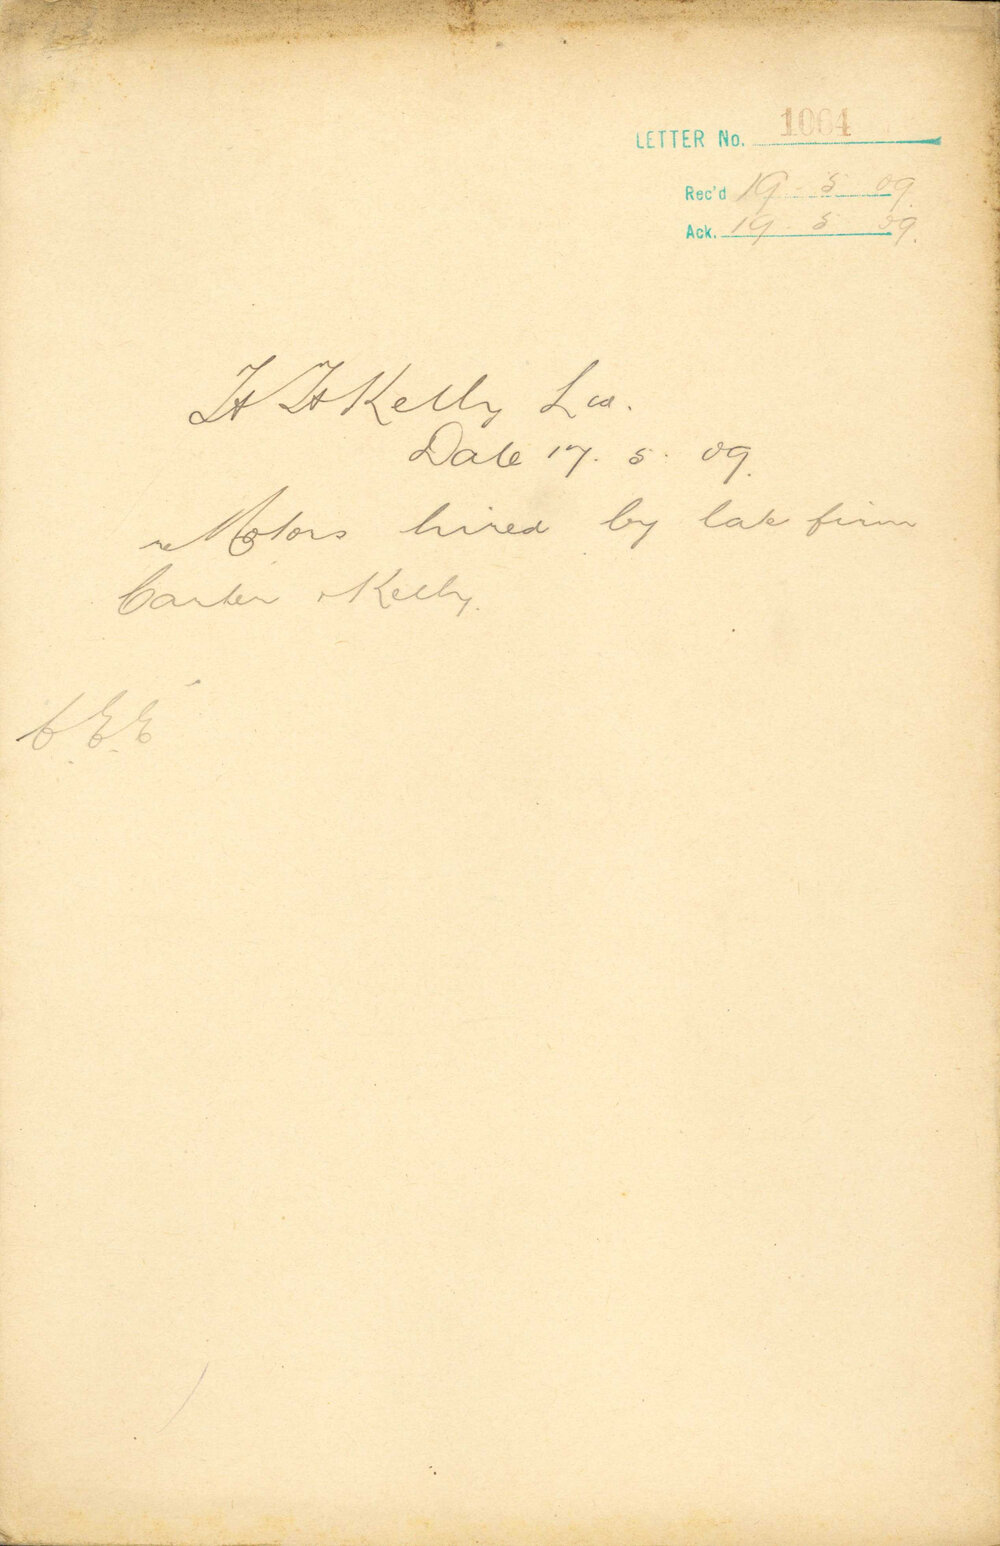 LETTER No. 1064
Rec'd 19 - 5 09.
Ack. 19 5 09.
H H Kelly Ltd.
Date 17. 5. 09.
re Motors hired by late firm
Carter & Kelly.
C.E.E